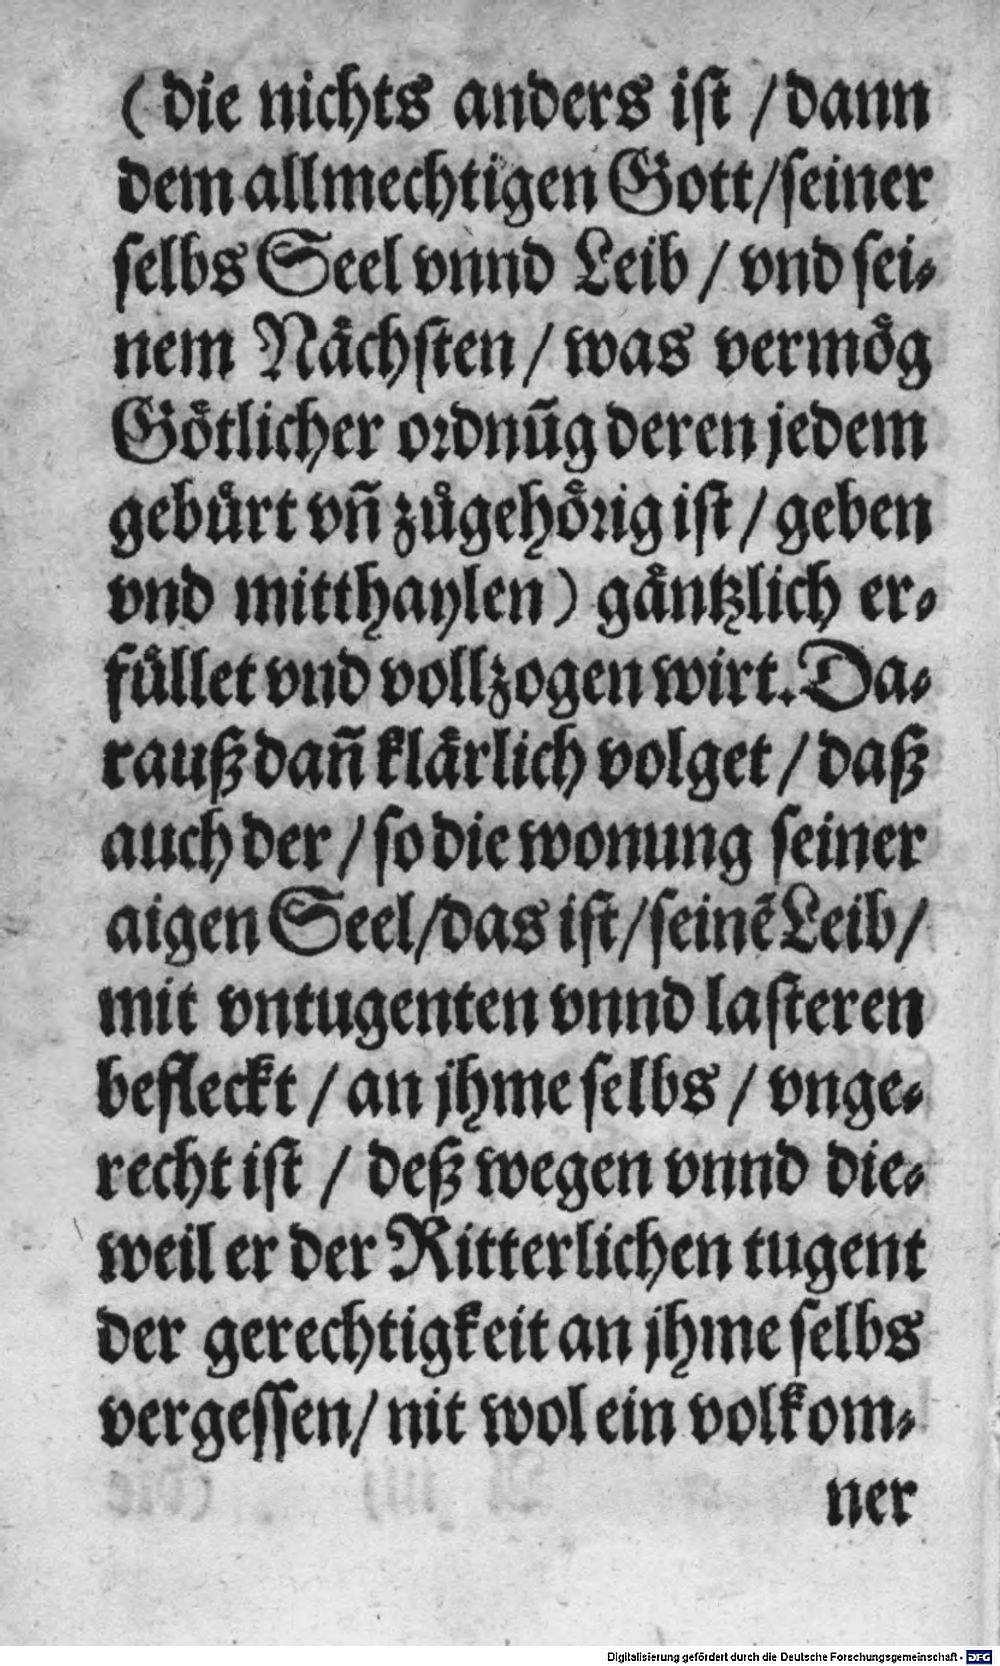 (die nichts anders iſt / dann
dem allmechtigen Gott / ſeiner
ſelbs Seel vnnd Leib / vnd ſei⸗
nem Nåchſten / was vermög
Götlicher ordnūg deren jedem
gebürt vñ zůgehörig iſt / geben
vnd mitthaylen) gåntzlich er⸗
füllet vnd vollzogen wirt. Da⸗
rauß dañ klårlich volget / daß
auch der / ſo die wonung ſeiner
aigen Seel / das iſt / ſeinē Leib /
mit vntugenten vnnd laſteren
befleckt / an jhme ſelbs / vnge⸗
recht iſt / deß wegen vnnd die⸗
weil er der Ritterlichen tugent
der gerechtigkeit an jhme ſelbs
vergeſſen / nit wol ein volkom⸗
ner
Digitalisierung gefördert durch die Deutsche Forschungsgemeinschaft - DFG